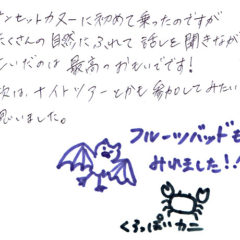 ンセットカヌーに初めて乗ったのですが
たくさんの自然にふれて話しを聞きなが
いだのは最高のおもいです!
次は、ナイトツアーとかも参加してみたい
思いました。
フルーツバッドも
みれました!!
くろっぽいカニ